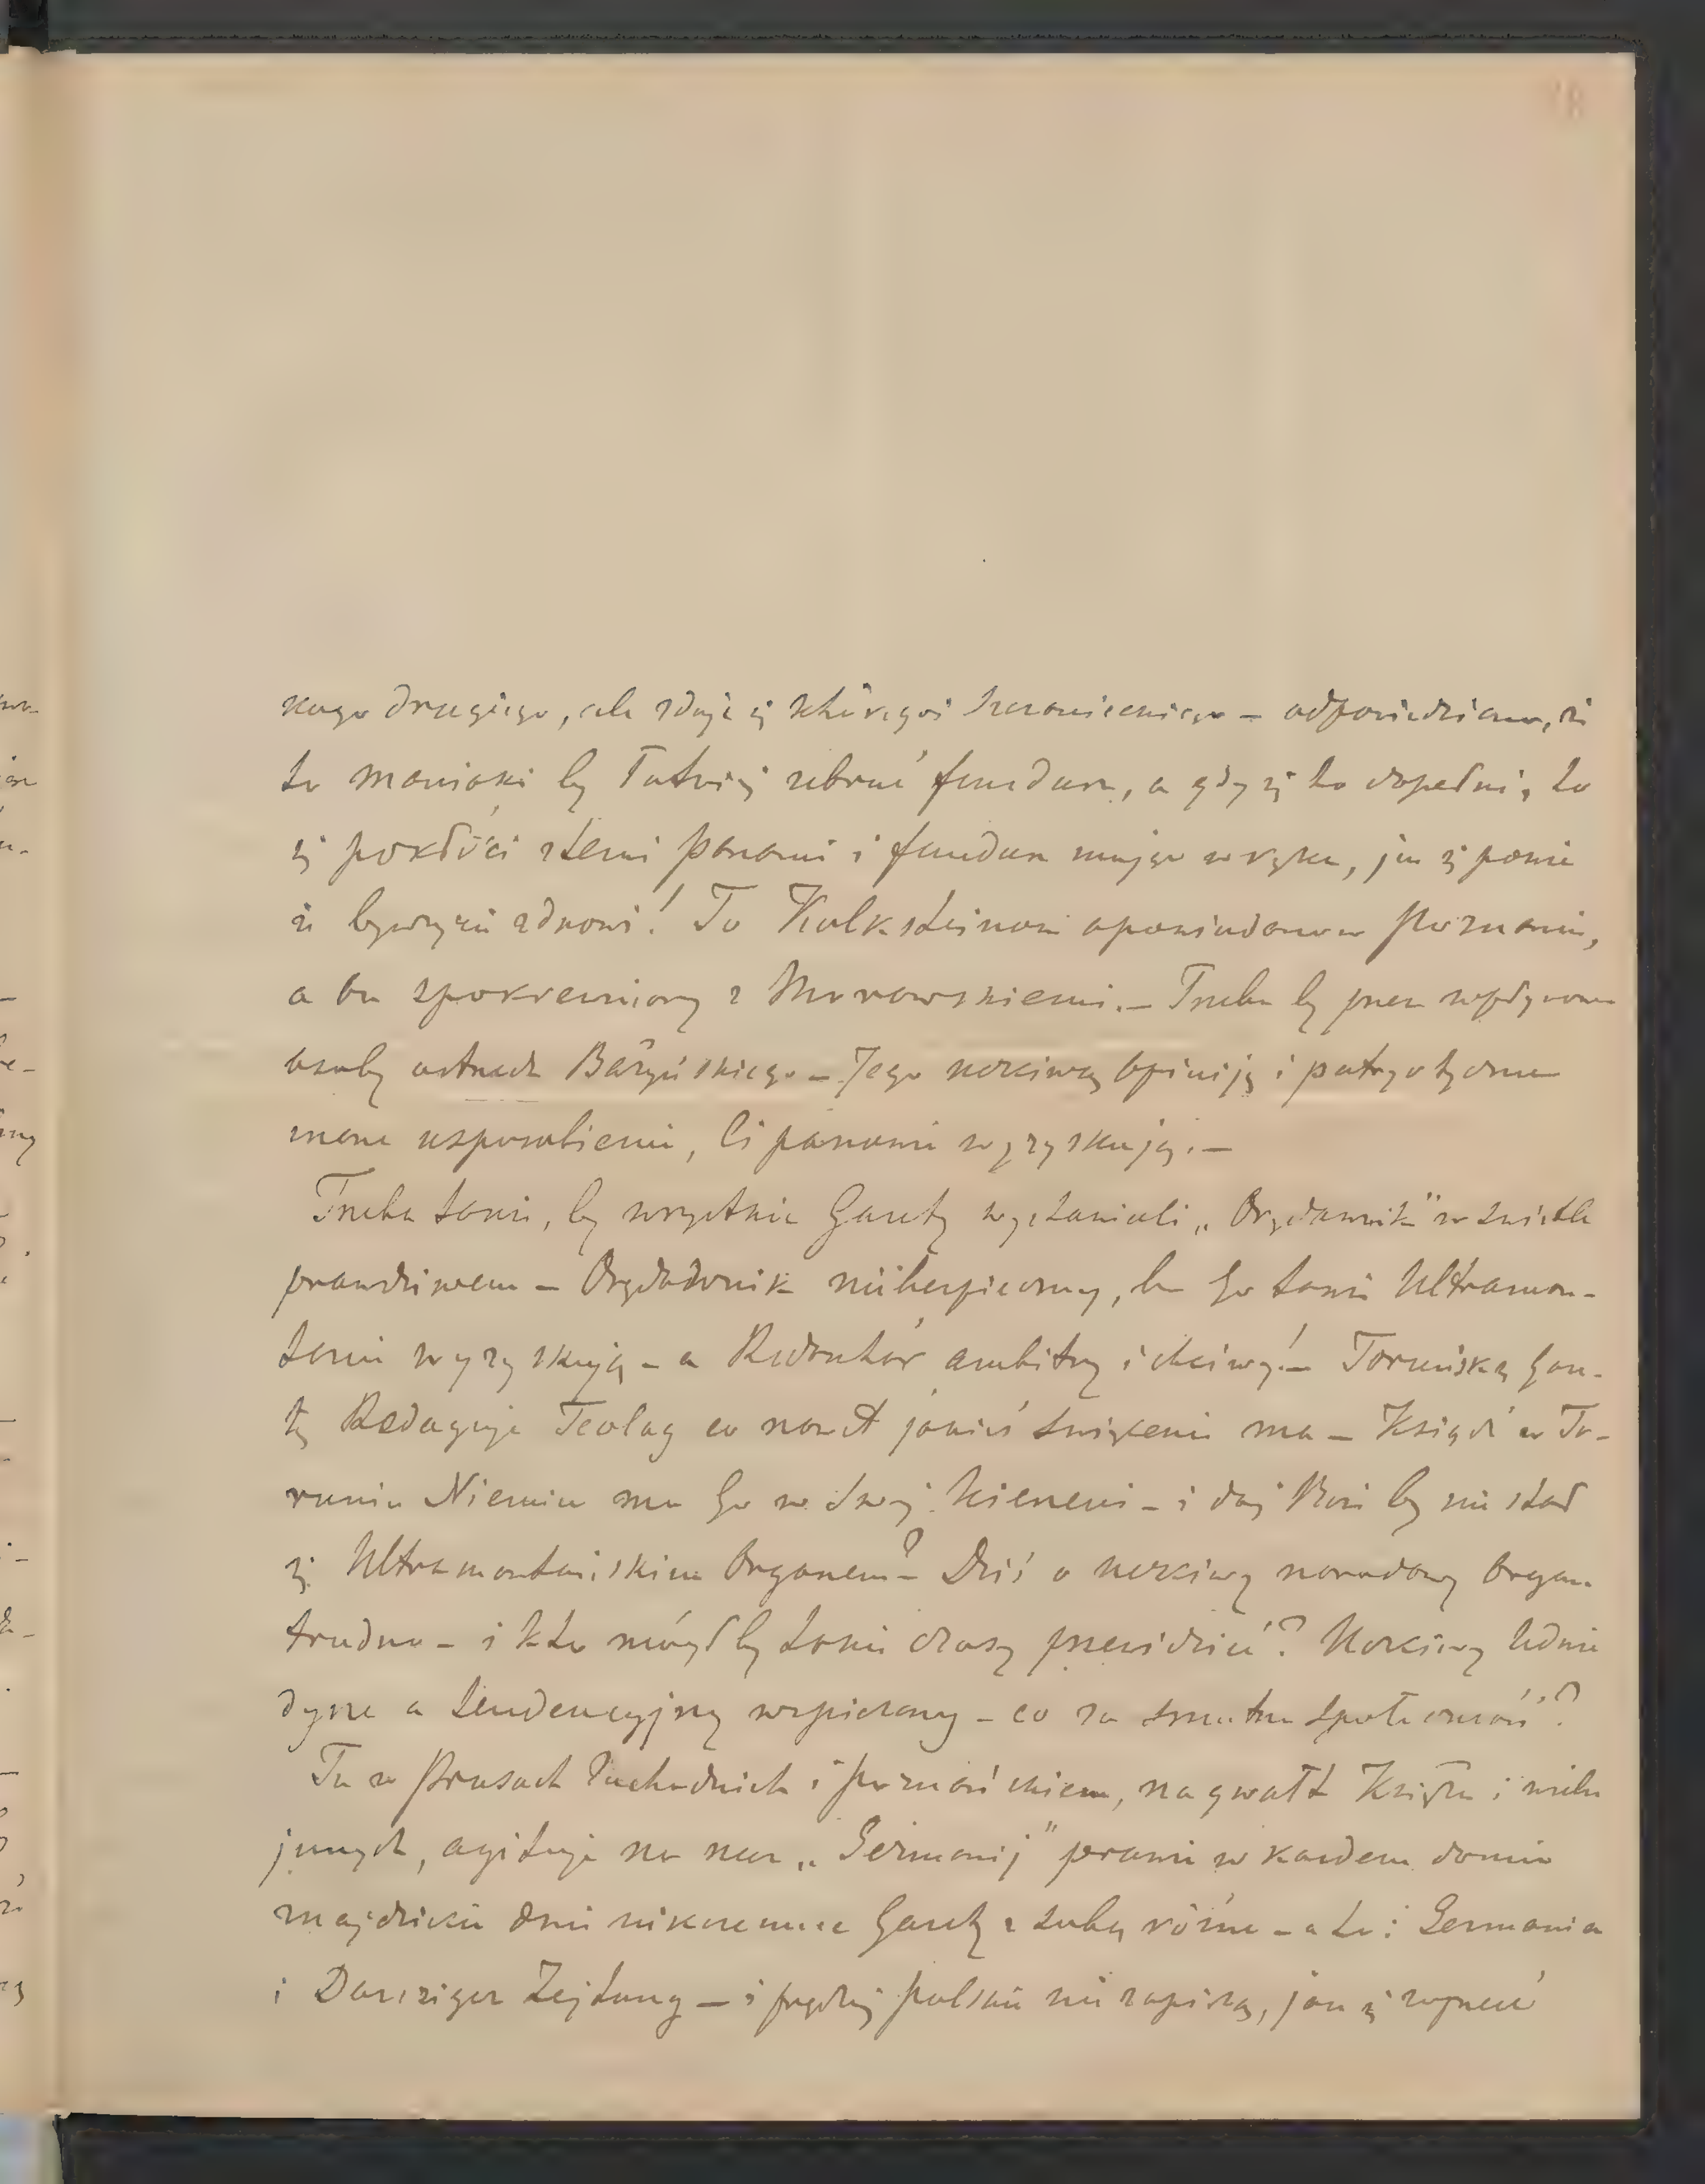 kogo drugiego, ale zdaje się któregoś – odpowiedziano, że
to maniaki by łatwiej zebrać fundusz, a gdy się to dopełni, to
się pokłóci z temi panami i fundusz mając w ręku, jak się panie
że bywajcie zdrowi! To Kalksteinowi opowiadano w Poznaniu,
a on spokrewniony z Morawskiemi. – Trzeba by przez wpływowe
osoby ostrzedz Bażyńskiego – Jego uczciwą opiniję i patryotyczne
usposobienie, li panowie wyzyskują. –
Trzeba także, by wszystkie Gazety wystawiali „Orędownik" w świetle
prawdziwem – Orędownik niebezpieczny, bo Go także Ultramon-
tanie wyzyskują – a Redaktór ambitny i chciwy! – Toruńską Gaze-
tę Redaguje Teolog co nawet jakieś święcenie ma – Ksiądz w To-
runiu Niemiec ma Go w swej kieszeni – i daj Boże by nie stał
się Ultramontańskim Organem? – Dziś o uczciwy narodowy Organ
trudno – i kto mógłby takie czasy przewidzieć? Uczciwy
a tendencyjny wspierany – co za smutna społeczność?
Tu w Prusach Zachodnich i Poznańskiem, na gwałt Księża i wielu
innych, agituje na rzecz „Germanij" prawie w każdem domu
znajdziecie dziś niemieckie Gazety z sobą różne – a to: Germania
i Danziger Zejtung – i prędzej polskie nie zapiszą, jak się wyprzeć